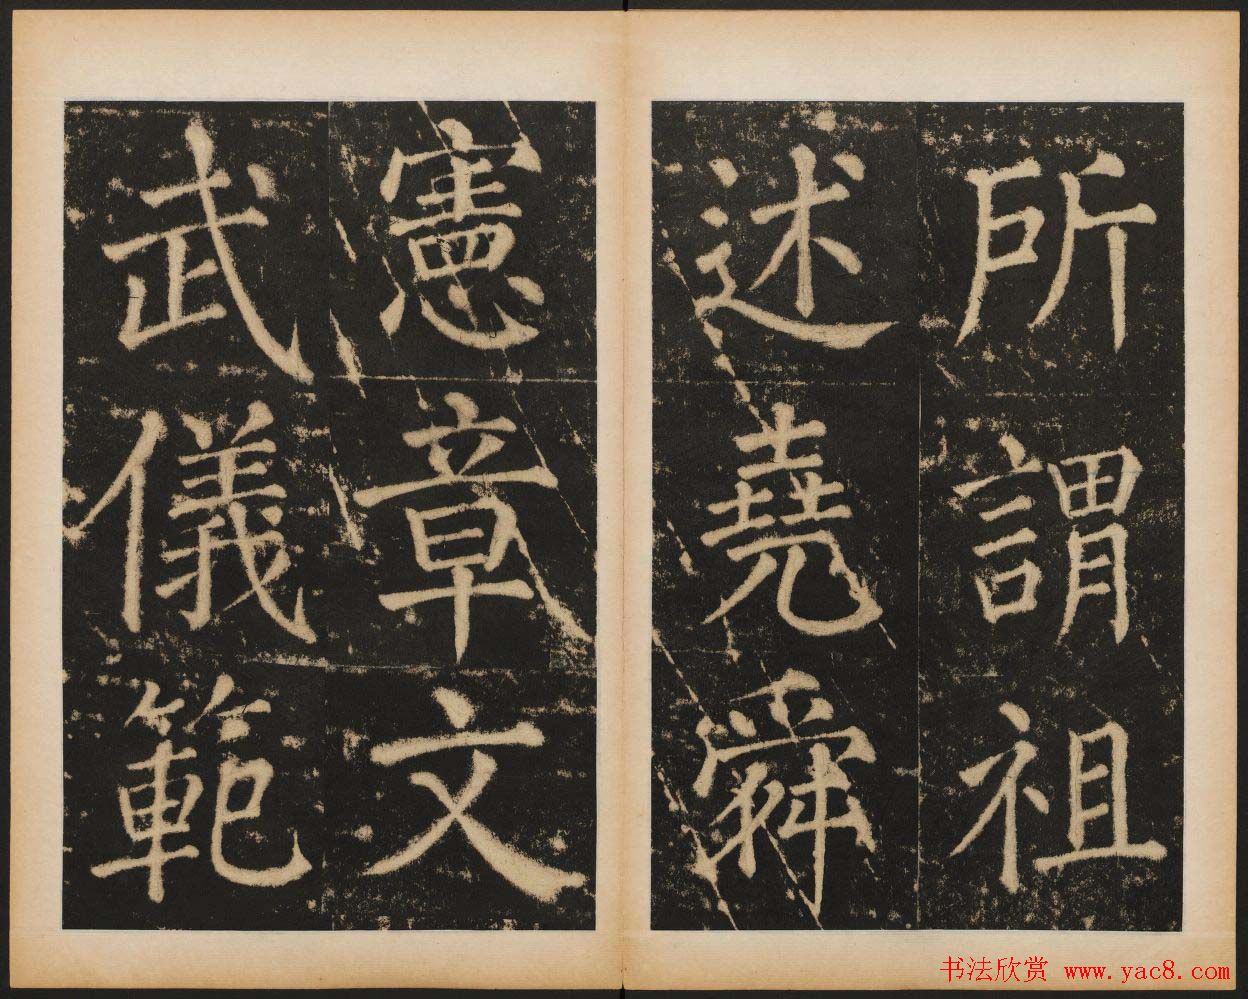 所謂祖
述堯舜
憲章文
武儀範
书法欣赏 www.yac8.com